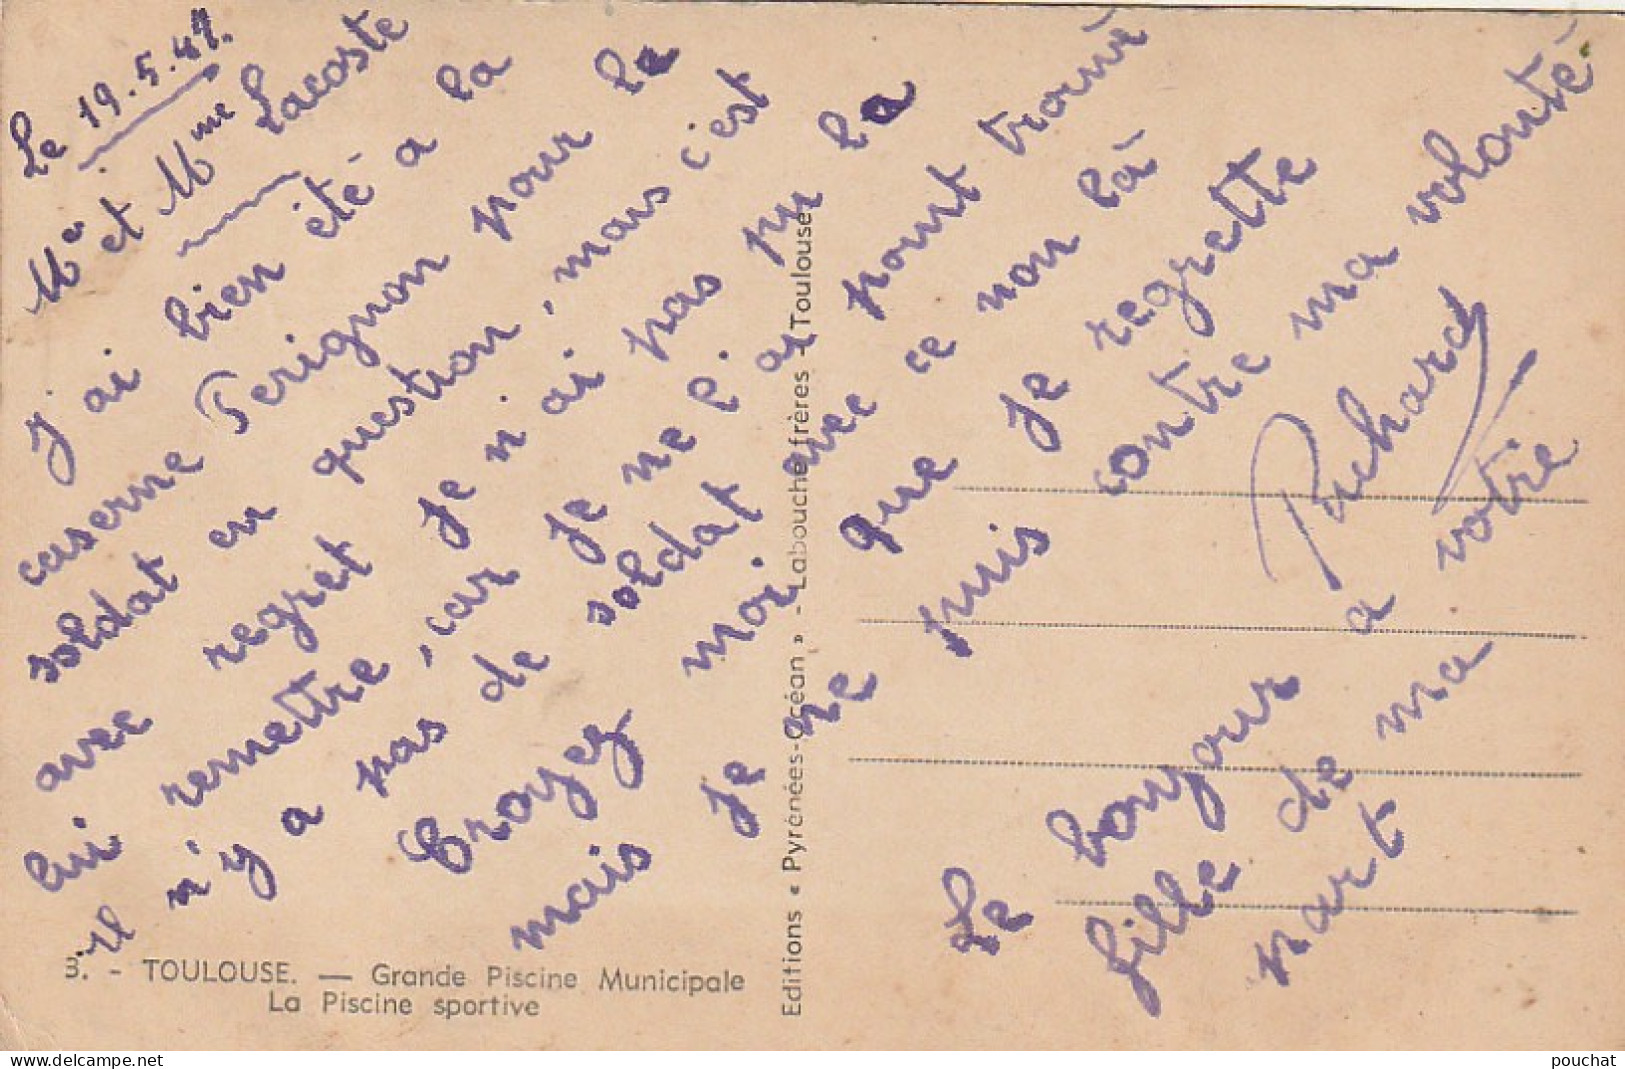 Le 19.5.41.
Me et Mme Lacoste
J'ai bien été a la
caserne Perignon pour le
soldat en question, mais c'est
avec regret je n'ai pas pu la
lui remettre, car je ne l'ai point trouvé
Il n'y a pas de soldat avec ce nom là
Croyez moi que je regrette
mais je ne puis contre ma volonté
Puchard
Le bonjour a votre
fille de ma
part
3. - TOULOUSE. — Grande Piscine Municipale
La Piscine sportive
Editions « Pyrénées-Océan » - Labouche frères - Toulouse
www.delcampe.net
pouchat